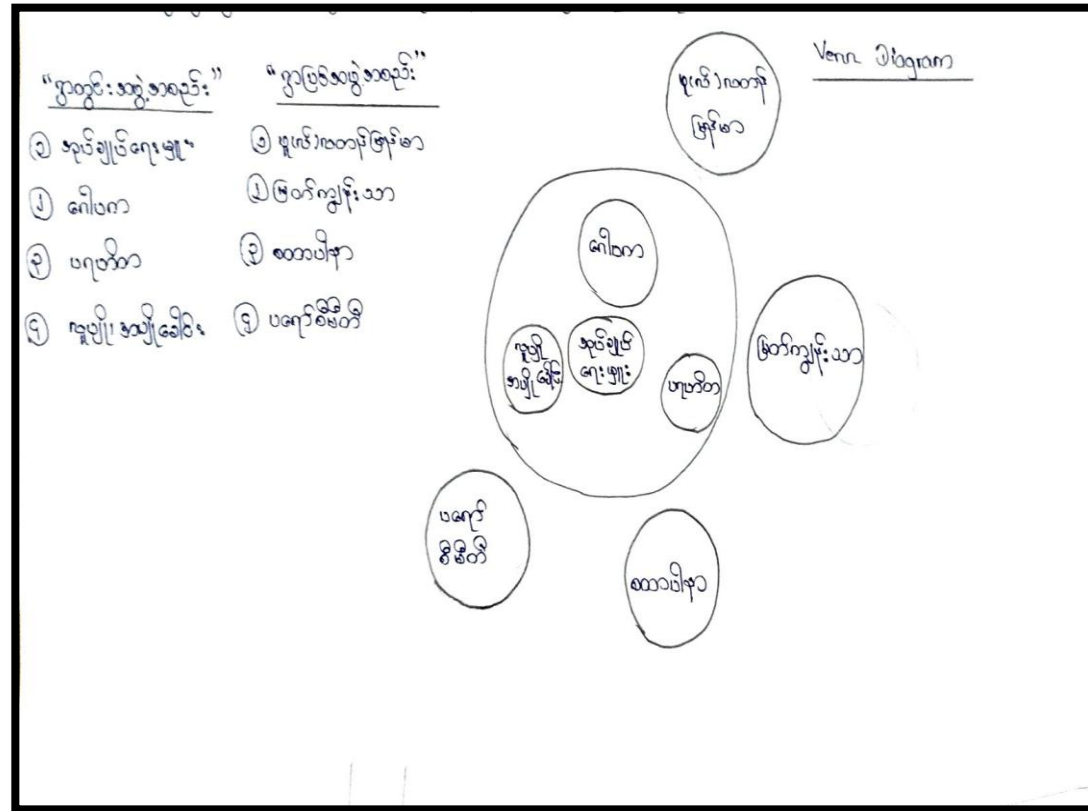 "ရွာတွင်းအဖွဲ့အစည်း"
၁ အုပ်ချုပ်ရေးမှူး
၂ ဂေါပက
၃ ပရဟိတ
၄ လူပျို၊ အပျိုခေါင်း
"ရွာပြင်အဖွဲ့အစည်း"
၁ ဖူး(လ်)လတာန်မြန်မာ
၂ မြတ်ကျွန်းသာ
၃ စတာပါနာ
၄ ပရော်စီမီတီ
Venn Diagram
ဖူး(လ်)လတာန်
မြန်မာ
ဂေါပက
လူပျို
အပျိုခေါင်း
အုပ်ချုပ်
ရေးမှူး
ပရဟိတ
မြတ်ကျွန်းသာ
ပရော်
စီမီတီ
စတာပါနာ